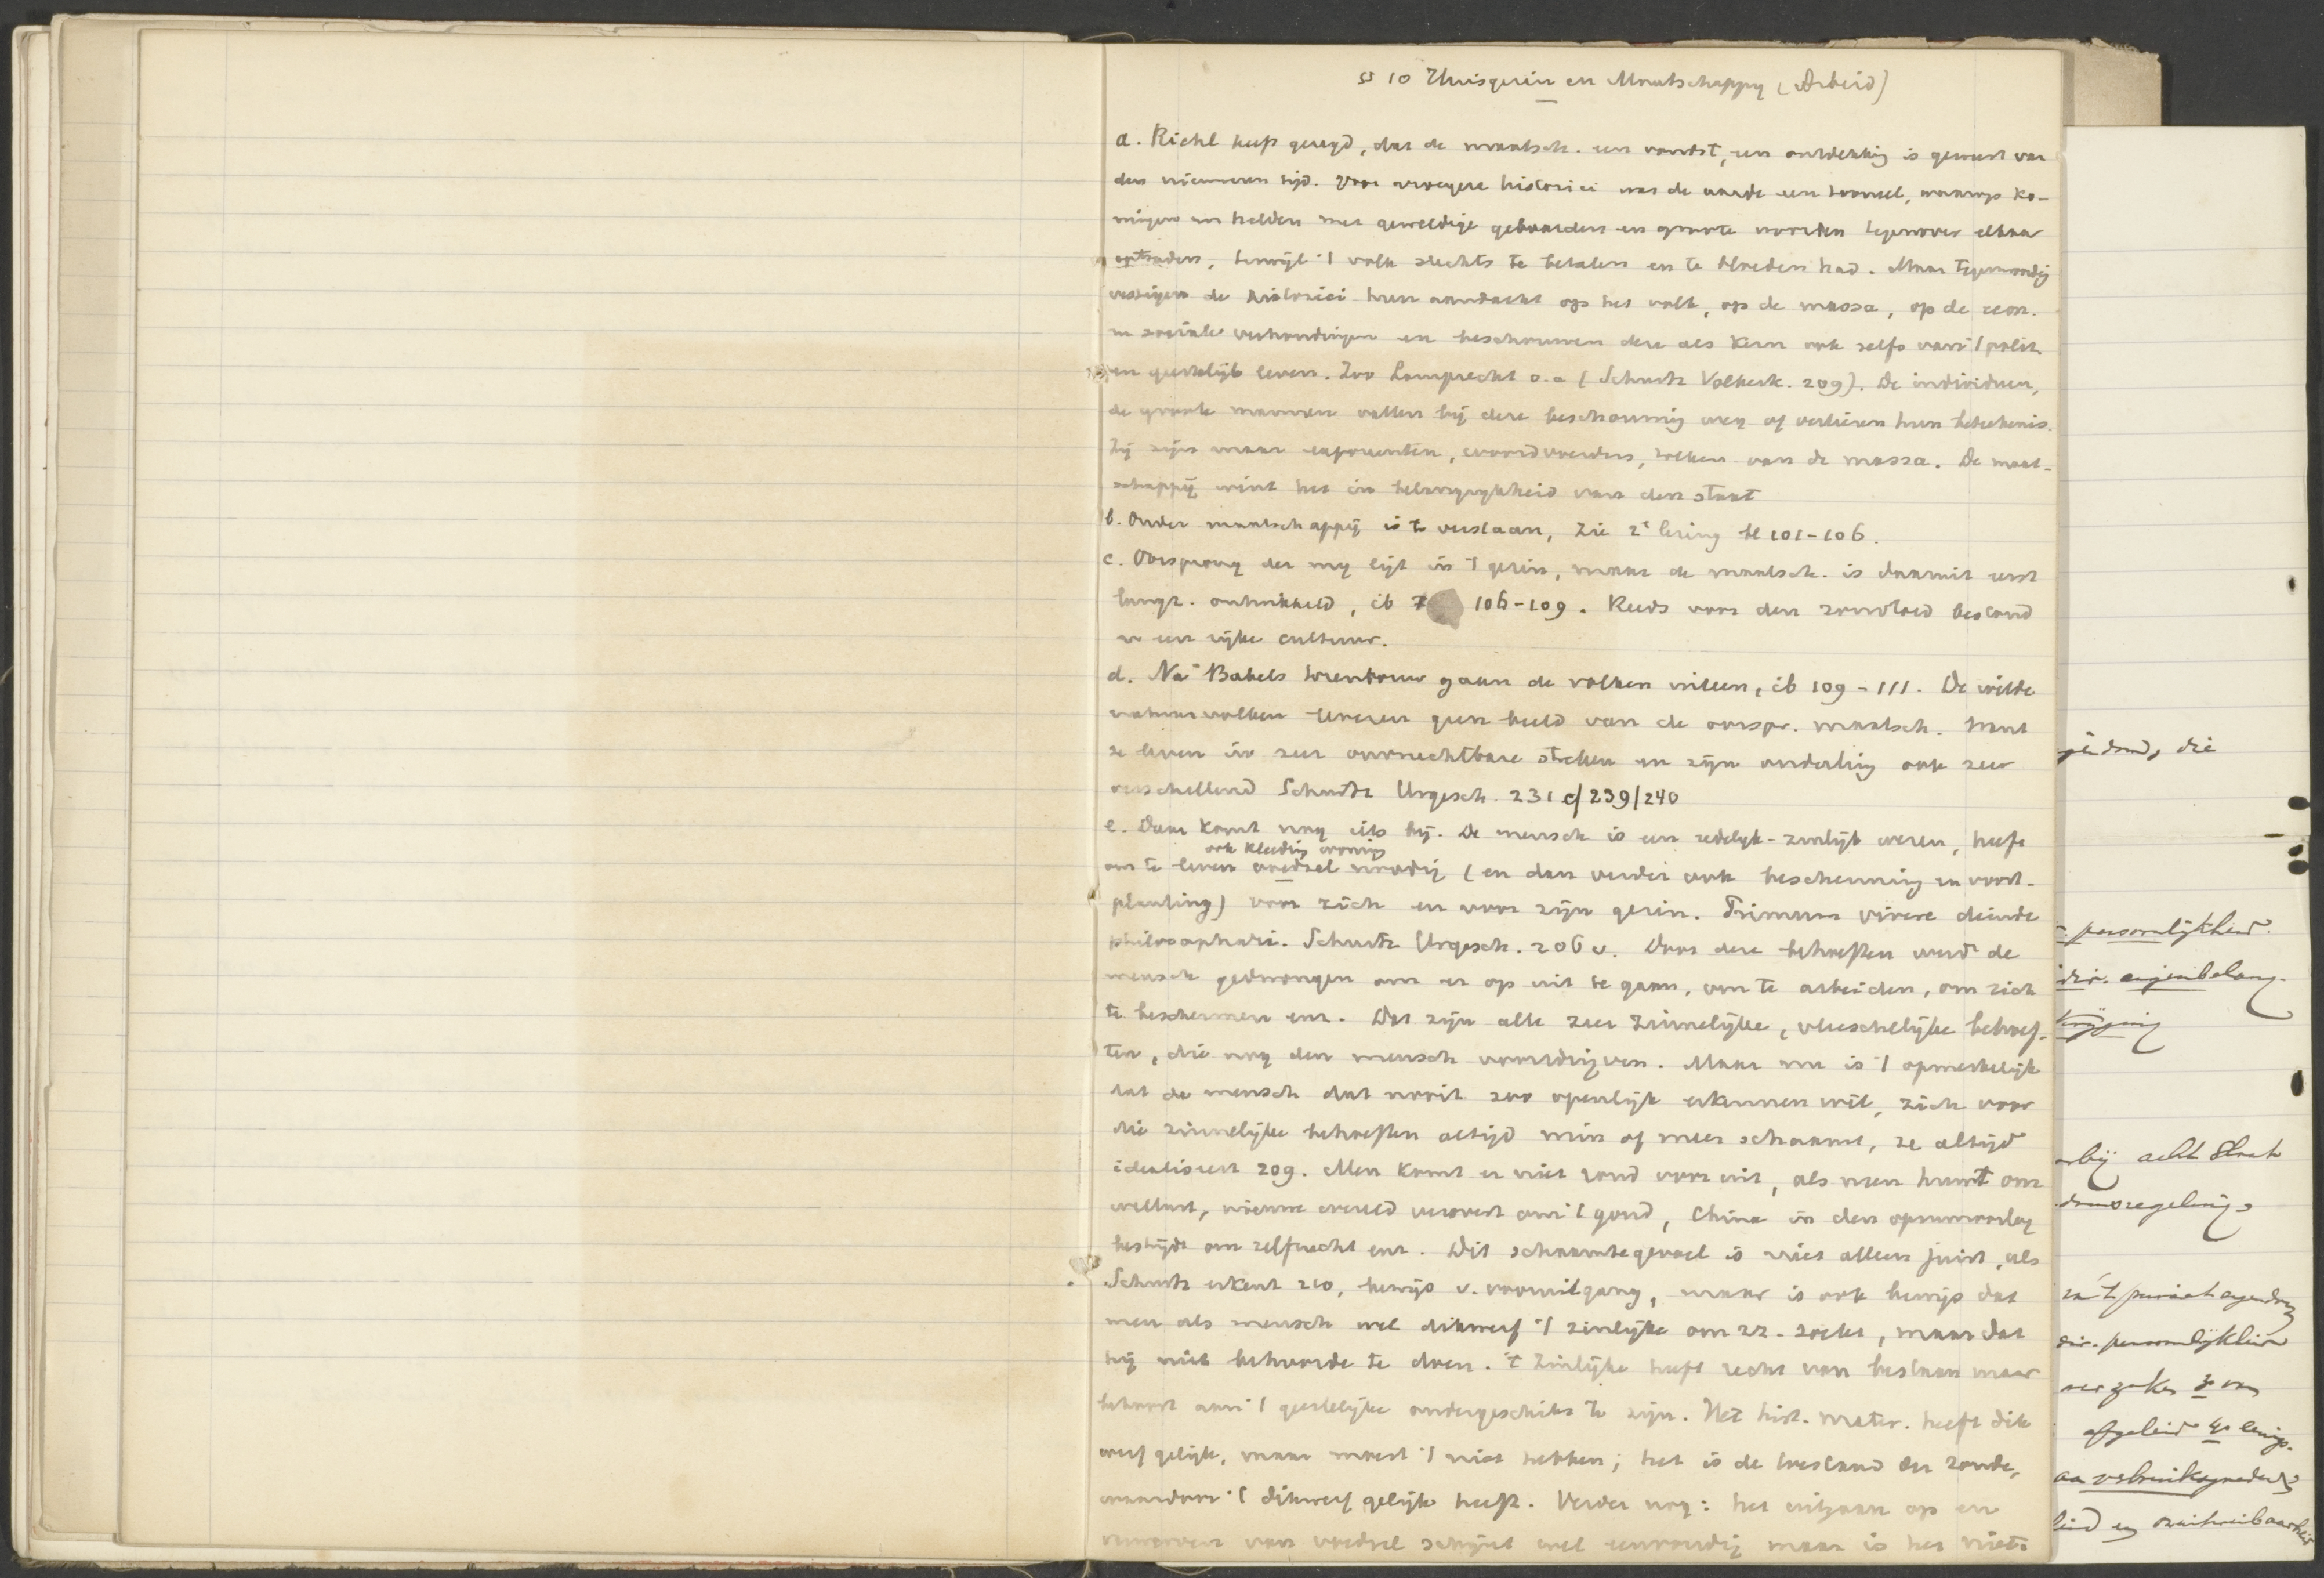 § 10 Huisgezin en Maatschappij (Arbeid)
a. Riehl heeft gezegd, dat de maatsch. een vondst, een ontdekking is geweest van
den nieuweren tijd. Voor vroegere historici was de aarde een tooneel, waarop ko-
ningen en helden met geweldige gebaarden en groote woorden tegenover elkaar
optraden, terwijl 't volk slechts te betalen en te bloeden had. Maar tegenwoordig
vestigen de historici hun aandacht op het volk, op de massa, op de econ.
en sociale verhoudingen en beschouwen deze als kern ook zelfs van 't polit.
en geestelijk leven. Zoo Lamprecht o.a. (Schurtz Völkerk. 209). De individuen,
de groote mannen vallen bij deze beschouwing weg of verliezen hun beteekenis.
Zij zijn maar exponenten, woordvoerders, tolken van de massa. De maat-
schappij wint het in belangrijkheid van den staat
b. Onder maatschappij is te verstaan, zie 2e lezing bl 101-106.
c. Oorsprong der mij ligt in 't gezin, maar de maatsch. is daaruit eerst
langz. ontwikkeld, ib 106-109. Reeds voor den zondvloed bestond
er een rijke cultuur.
d. Na Babels torenbouw gaan de volken uiteen, ib 109-111. De wilde
natuurvolken leveren geen beeld van de oorspr. maatsch. Want
ze leven in zeer onvruchtbare streken en zijn onderling ook zeer
verschillend Schurtz Urgesch. 231 c/239/240
e. Daar komt nog iets bij. De mensch is een redelijk-zinlijk wezen, heeft
ook kleeding woning
om te leven voedsel noodig (en dan verder ook bescherming en voort-
planting) voor zich en voor zijn gezin. Primum vivere deinde
philosophari. Schurtz Urgesch. 206 v. Door deze behoeften werd de
mensch gedwongen om er op uit te gaan, om te arbeiden, om zich
te beschermen enz. Dat zijn alle zeer zinnelijke, vleeschelijke behoef-
ten, die nog den mensch voortdrijven. Maar nu is 't opmerkelijk
dat de mensch dat nooit zoo openlijk erkennen wil, zich voor
die zinnelijke behoeften altijd min of meer schaamt, ze altijd
idealiseert 209. Men komt er niet rond voor uit, als men huwt om
wellust, nieuwe wereld verovert om 't goud, China in den opiumoorlog
bestrijdt om zelfzucht enz. Dit schaamtegevoel is niet alleen juist, als
Schurtz erkent 210, bewijs v. vooruitgang, maar is ook bewijs dat
men als mensch wel dikwerf 't zinlijke om zz. zoekt, maar dat
hij niet behoorde te doen. 't Zinlijke heeft recht van bestaan maar
behoort aan 't geestelijke ondergeschikt te zijn. Het hist. mater. heeft dik
werf gelijk, maar moest 't niet hebben; het is de toestand der zonde,
waardoor 't dikwerf gelijk heeft. Verder nog: het uitgaan op en
verwerven van voedsel schijnt wel eenvoudig maar is het niet.
die
persoonlijkheid.
eigenbelang.
acht
regeling
't privaat eigendom
persoonlijkheid
zaken
afgeleid
verbruiksgoederen